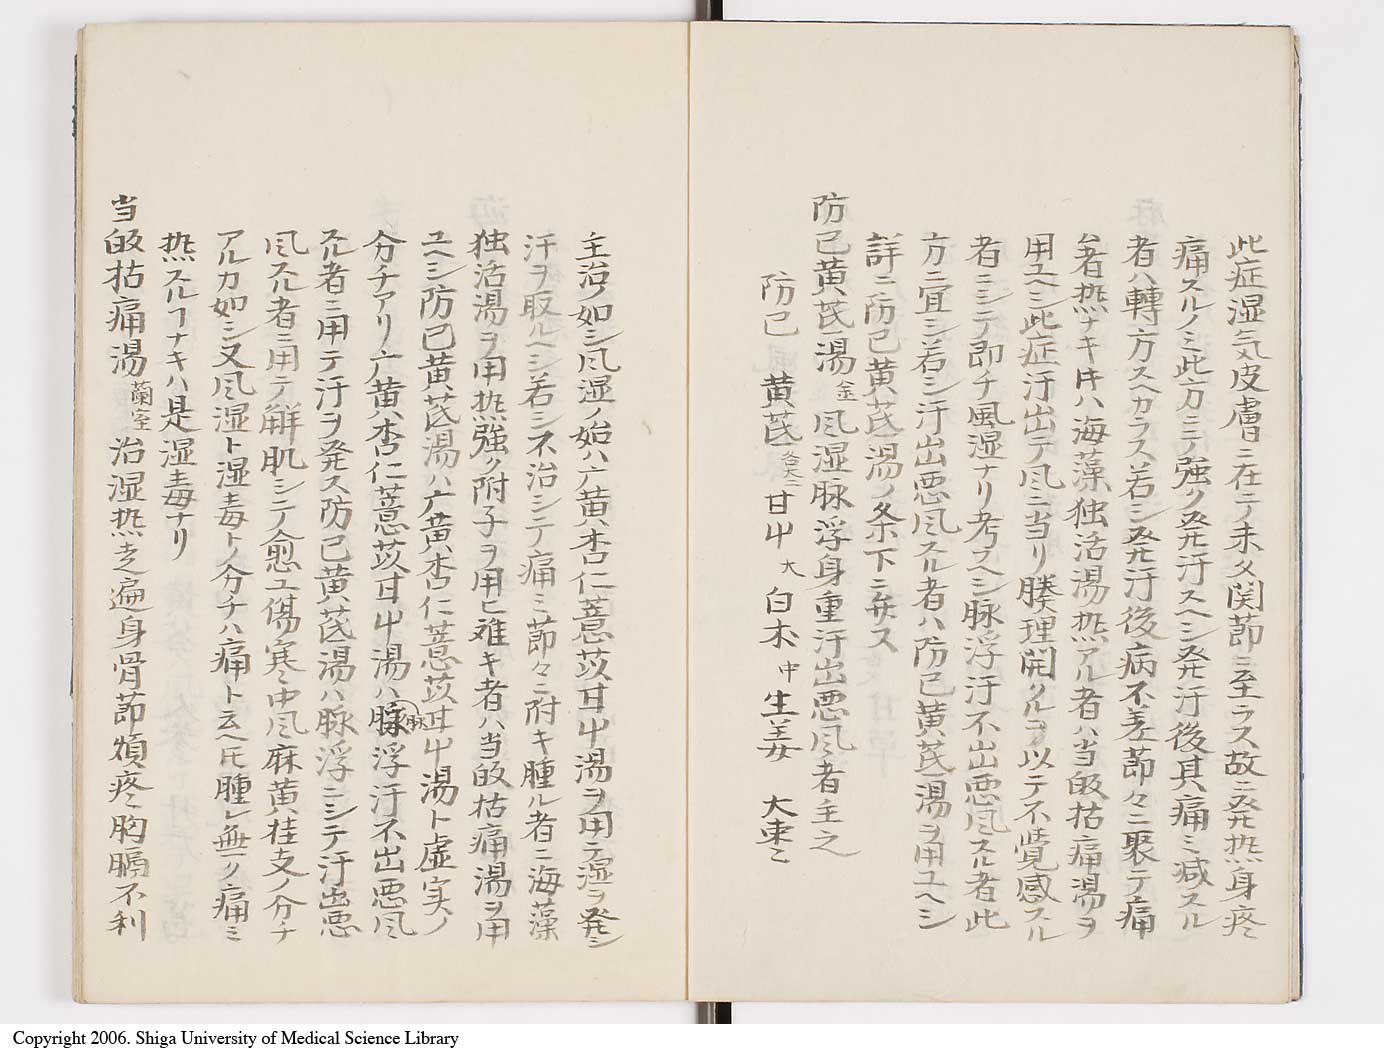 此症湿気皮膚ニ在テ未タ関節ニ至ラス故ニ発热身疼
痛スルノミ此方ニテ強ク発汗スヘシ発汗後其痛ミ減スル
者ハ轉方スヘカラス若シ発汗後病不差節々ニ聚テ痛
ム者热ナキ𪜈ハ海藻独活湯热アル者ハ当皈拈痛湯ヲ
用ユヘシ此症汗出テ风ニ当リ腠理開クルヲ以テ不覺感スル
者ニシテ即チ風湿ナリ考スヘシ脉浮汗不出悪风スル者此
方ニ宜シ若シ汗出悪风スル者ハ防已黄芪湯ヲ用ユヘシ
詳ニ防已黄芪湯ノ条下ニ弁ス
防已黄芪湯 金 风湿脉浮身重汗出悪风者主之
防已 黄芪各大 甘屮大 白朮中 生姜 大棗
主治ノ如シ风湿ノ始ハ广黄杏仁薏苡甘屮湯ヲ用テ湿ヲ発シ
汗ヲ取ルヘシ若シ不治シテ痛ミ節々ニ附キ腫ル者ニ海藻
独活湯ヲ用热強ク附子ヲ用ヒ难キ者ハ当皈拈痛湯ヲ用
ユヘシ防已黄芪湯ハ广黄杏仁薏苡甘屮湯ト虚実ノ
分チアリ广黄杏仁薏苡甘屮湯ハ脉浮汗不出悪风
スル者ニ用テ汗ヲ発ス防已黄芪湯ハ脉浮ニシテ汗出悪
风スル者ニ用テ解肌シテ愈ユ傷寒中风麻黄桂支ノ分チ
アルカ如シ又风湿ト湿毒トノ分チハ痛ト云ヘ𪜈腫レ無ク痛ミ
热スルヿナキハ是湿毒ナリ
当皈拈痛湯 蘭室 治湿热走遍身骨節煩疼胸膈不利
Copyright 2006. Shiga University of Medical Science Library